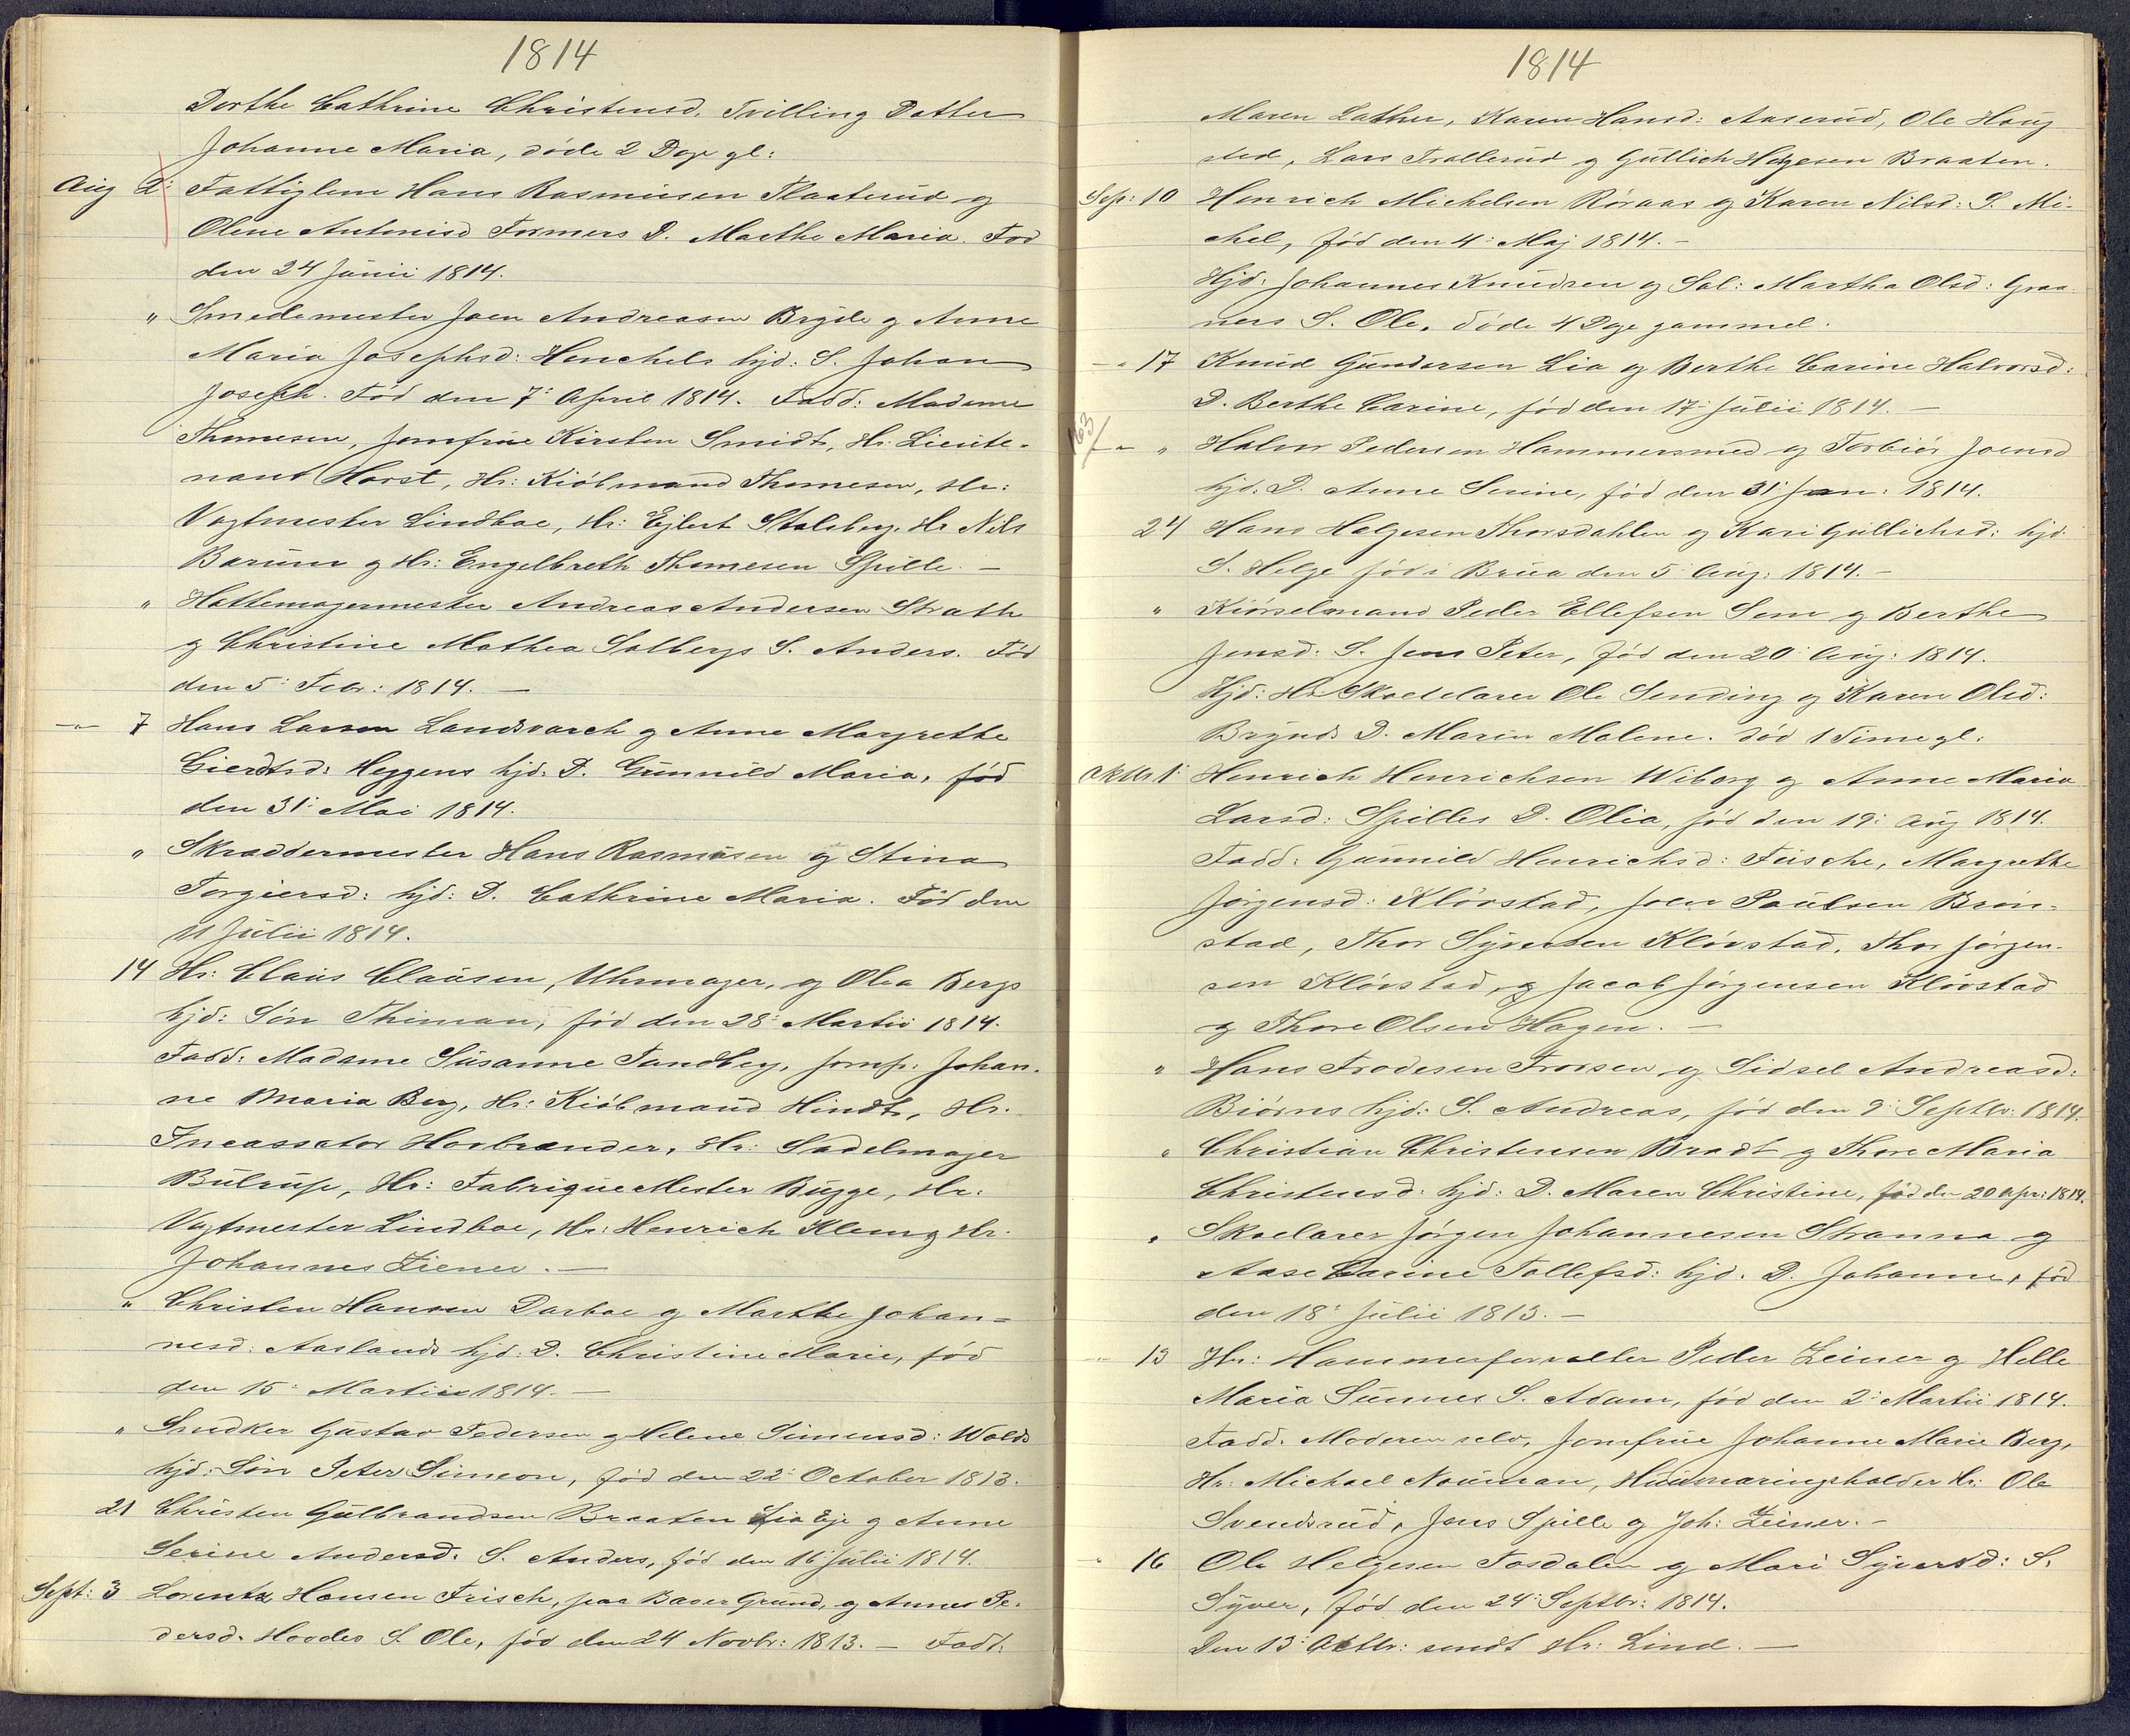 1814
Dorthe Cathrine Christensd. Tvilling Datter
Johanne Maria, døde 2 Dage gl:
Aug 2: Fattiglem Hans Rasmusen Plaaterud og
Olene Antonisd Formers D. Marthe Maria. Fød
den 24 Junii 1814.
" Smedemester Joen Andreasen Brygde og Anne
Maria Josephsd: Henchels hjd: S. Johan
Joseph. Fød den 7: April 1814. Fadd: Madame
Thomesen, Jomfrue Kirsten Smidt, Hr. Lieute-
nant Horst, Hr: Kiöbmand Thomesen, Hr:
Vagtmester Lindboe, Hr: Ejlert Stalsberg, Hr Nils
Barum og Hr: Engelbreth Thomesen Spille. —
" Hattemagermester Andreas Andersen Strath
og Christine Mathea Solbergs S. Anders. Fød
den 5: Febr: 1814. —
—"— 7 Hans Larsen Landsvarch og Anne Margrethe
Gierdtsd: Heggens hjd. D. Gunnild Maria, fød
den 31: Mai 1814.
" Skraddermester Hans Rasmusen og Stina
Torgiersd: hjd: D. Cathrine Maria. Fød den
11 Julii 1814.
14 Hr: Claus Clausen, Uhrmager, og Olea Bergs
hjd: Søn Thiman, fød den 28: Martii 1814.
Fadd: Madame Susanne Tandberg, Jomfr: Johan-
ne Maria Berg, Hr: Kiöbmand Hindt, Hr.
Incassator Horbrander, Hr: Sadelmager
Bulrup, Hr: Fabrique Mester Bugge, Hr:
Vagtmester Lindboe, Hr: Henrich Klem og Hr.
Johannes Ziener. —
" Christen Hansen Darboe og Marthe Johan=
nesd: Aaslands hjd: D. Christine Marie, fød
den 15: Martii 1814. —
" Snedker Gustav Pedersen og Helene Simensd: Wolds
hjd: Søn Peter Simeon, fød den 22: October 1813.
21 Christen Gulbrandsen Braaten Lia Eje og Anne
Serine Andersd. S. Anders, fød den 16 Julii 1814.
Sept: 3 Lorentz Hansen Frisch, paa Baser Grund, og Annes Pe-
dersd. Hoodes S. Ole, fød den 24 Novbr: 1813. — Fadd:
1814
Maren Lather, Karen Hansd: Aaserud, Ole Haug
sted, Lars Trollerud og Gullich Helgesen Braaten.
Sep: 10 Henrich Michelsen Røraas og Karen Nilsd: S. Mi-
chel, fød den 4: Maj 1814. —
Hjd: Johannes Knudsen og Sal: Martha Olsd: Graa
ners S. Ole, døde 4 Dage gammel.
—" 17 Knud Gundersen Lia og Berthe Carine Halvorsd:
D. Berthe Carine, fød den 17: Julii 1814. —
63 —"— " Halvor Pedersen Hammersmed og Torbiör Joensd
hjd. D. Anne Serine, fød den 31: Jan: 1814.
24 Hans Helgesen Thorsdahlen og Kari Gullichsd: hjd.
S. Helge fød i Brua den 5: Aug: 1814. —
" Kiörselmand Peder Ellefsen Sem og Berthe
Jensd: S. Jens Peter, fød den 20: Aug: 1814.
Hjd: Hr Skoelelarer Ole Sending og Karen Olsd:
Brynds D. Maria Malene. død 1 Time gl.
Octbr 1: Henrich Henrichsen Wiborg og Anne Maria
Larsd: Spilles D. Olia, fød den 19: Aug 1814.
Fadd: Gunnild Henrichsd: Fusche, Margrethe
Jørgensd: Kløvstad, Joen Paulsen Brøn-
stad, Thor Syversen Kløvstad, Thor Jørgen-
sen Kløvstad, og Jacob Jørgensen Kløvstad
og Thore Olsen Hagen. —
" Hans Frodesen Frorsen og Sidsel Andreasd:
Biørns hjd: S. Andreas, fød den 9: Septbr: 1814.
" Christian Christensen Bradt og Thore Maria
Christensd: hjd: D. Maren Christine, fød den 20 Apr: 1814.
" Skoelarer Jørgen Johannesen Stranna og
Aase Carine Tollefsd: hjd. D. Johanne, fød
den 18: Julii 1813. —
—"— 13 Hr: Hammerforvalter Peder Zeiner og Helle
Maria Sunnes S. Adam, fød den 2: Martii 1814.
Fadd. Moderen selv, Jomfrue Johanne Marie Berg,
Hr: Michael Nauman, Huusmaringsholder Hr: Ole
Svendsrud, Jens Spille og Joh: Zeiner. —
—" 16 Ole Helgesen Tosdalen og Mari Syversd: S.
Syver, fød den 24: Septbr: 1814.
Den 13: Octbr: sendt Hr: Lind. —